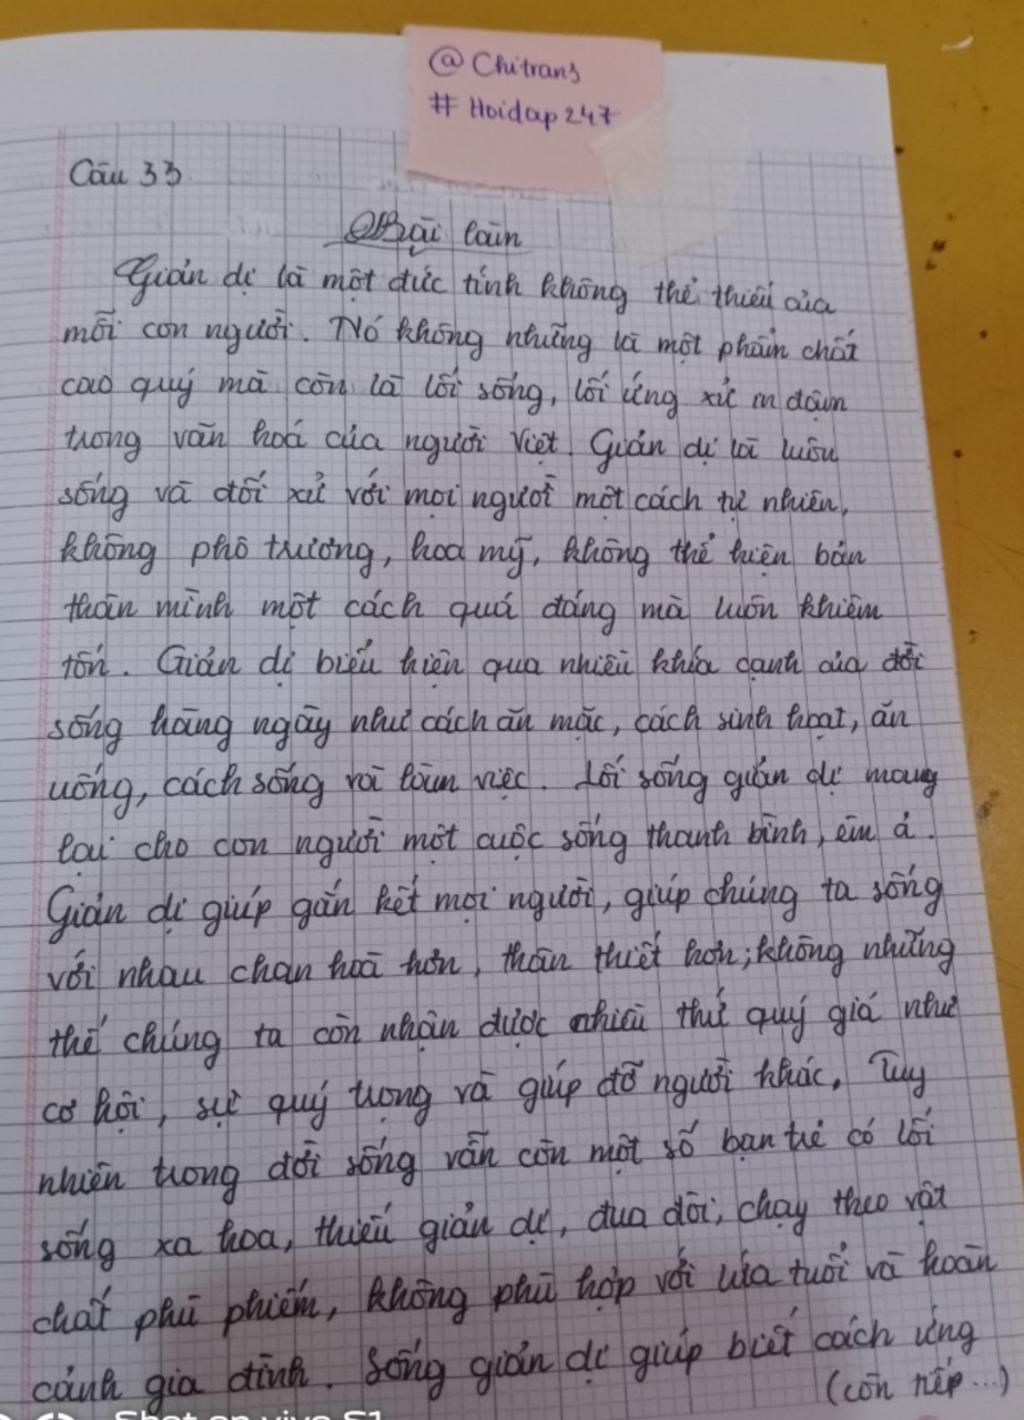 @ Chitrans
# Hoidap247
Câu 33
Bài làm
Giản dị là một đức tính không thể thiếu của
mỗi con người. Nó không những là một phẩm chất
cao quý mà còn là lối sống, lối ứng xử in đậm
trong văn hoá của người Việt. Giản dị là luôn
sống và đối xử với mọi người một cách tự nhiên,
không phô trương, hoa mỹ, không thể hiện bản
thân mình một cách quá đáng mà luôn khiêm
tốn. Giản dị biểu hiện qua nhiều khía cạnh của đời
sống hằng ngày như cách ăn mặc, cách sinh hoạt, ăn
uống, cách sống và làm việc. Lối sống giản dị mang
lại cho con người một cuộc sống thanh bình, êm ả.
Giản dị giúp gắn kết mọi người, giúp chúng ta sống
với nhau chan hoà hơn, thân thiết hơn; không những
thế chúng ta còn nhận được nhiều thứ quý giá như
cơ hội, sự quý trọng và giúp đỡ người khác. Tuy
nhiên trong đời sống vẫn còn một số bạn trẻ có lối
sống xa hoa, thiếu giản dị, đua đòi, chạy theo vật
chất phù phiếm, không phù hợp với lứa tuổi và hoàn
cảnh gia đình. Sống giản dị giúp biết cách ứng
(còn tiếp...)
Shot on vivo S1